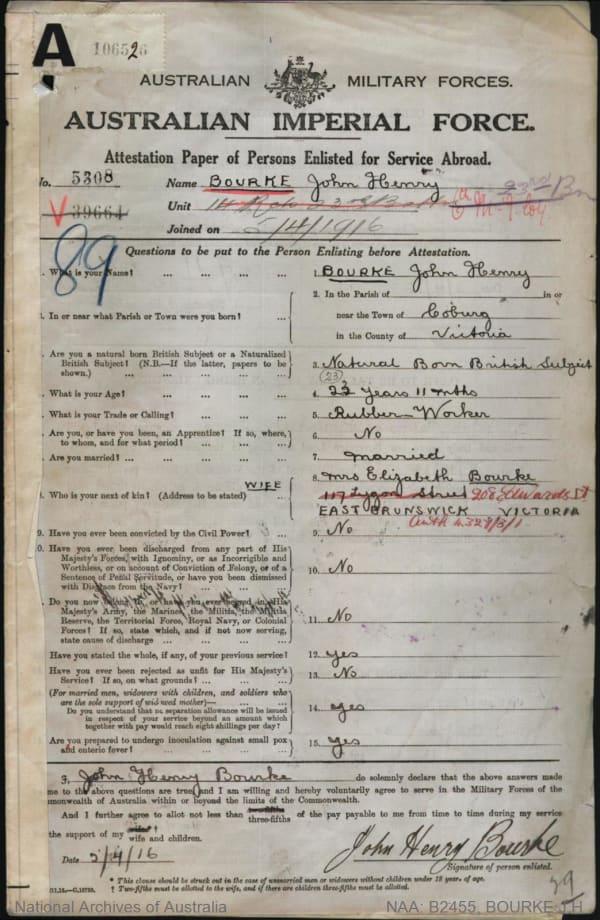 A
106526
AUSTRALIAN MILITARY FORCES.
AUSTRALIAN IMPERIAL FORCE.
Attestation Paper of Persons Enlisted for Service Abroad.
No. 5308 Name BOURKE John Henry 23rd Bn
39664 Unit
Joined on 5/4/1916
89
Questions to be put to the Person Enlisting before Attestation.
. What is your Name? ... ... ... ... 1. BOURKE John Henry
2. In the Parish of in or
. In or near what Parish or Town were you born? ... near the Town of Coburg
in the County of Victoria
. Are you a natural born British Subject or a Naturalized
British Subject? (N.B.—If the latter, papers to be
shown.) ... ... ... ... ... 3. Natural Born British Subject
(23)
. What is your Age? ... ... ... ... 4. 22 Years 11 mths
. What is your Trade or Calling? ... ... ... 5. Rubber-Worker
. Are you, or have you been, an Apprentice? If so, where,
to whom, and for what period? ... ... ... 6. No
. Are you married? ... ... ... ... 7. Married
WIFE 8. Mrs Elizabeth Bourke
. Who is your next of kin? (Address to be stated) ... 117 Lygon Street 208 Edwards St
EAST BRUNSWICK VICTORIA
9. Have you ever been convicted by the Civil Power? ... 9. No
0. Have you ever been discharged from any part of His
Majesty's Forces, with Ignominy, or as Incorrigible and
Worthless, or on account of Conviction of Felony, or of a
Sentence of Penal Servitude, or have you been dismissed
with Disgrace from the Navy? ... ... ... 10. No
. Do you now belong to, or have you ever served in, His
Majesty's Army, the Marines, the Militia, the Militia
Reserve, the Territorial Force, Royal Navy, or Colonial
Forces? If so, state which, and if not now serving,
state cause of discharge ... ... ... 11. No
Have you stated the whole, if any, of your previous service? 12. yes
Have you ever been rejected as unfit for His Majesty's
Service? If so, on what grounds? ... ... ... 13. No
(For married men, widowers with children, and soldiers who
are the sole support of widowed mother)—
Do you understand that no separation allowance will be issued
in respect of your service beyond an amount which
together with pay would reach eight shillings per day? 14. yes
Are you prepared to undergo inoculation against small pox
and enteric fever? ... ... ... ... 15. yes
I, John Henry Bourke do solemnly declare that the above answers made
me to the above questions are true, and I am willing and hereby voluntarily agree to serve in the Military Forces of the
monwealth of Australia within or beyond the limits of the Commonwealth.
And I further agree to allot not less than three-fifths of the pay payable to me from time to time during my service
the support of my wife and children.
Date 5/4/16 John Henry Bourke
Signature of person enlisted.
* This clause should be struck out in the case of unmarried men or widowers without children under 18 years of age.
† Two-fifths must be allotted to the wife, and if there are children three-fifths must be allotted.
National Archives of Australia NAA: B2455, BOURKE J H